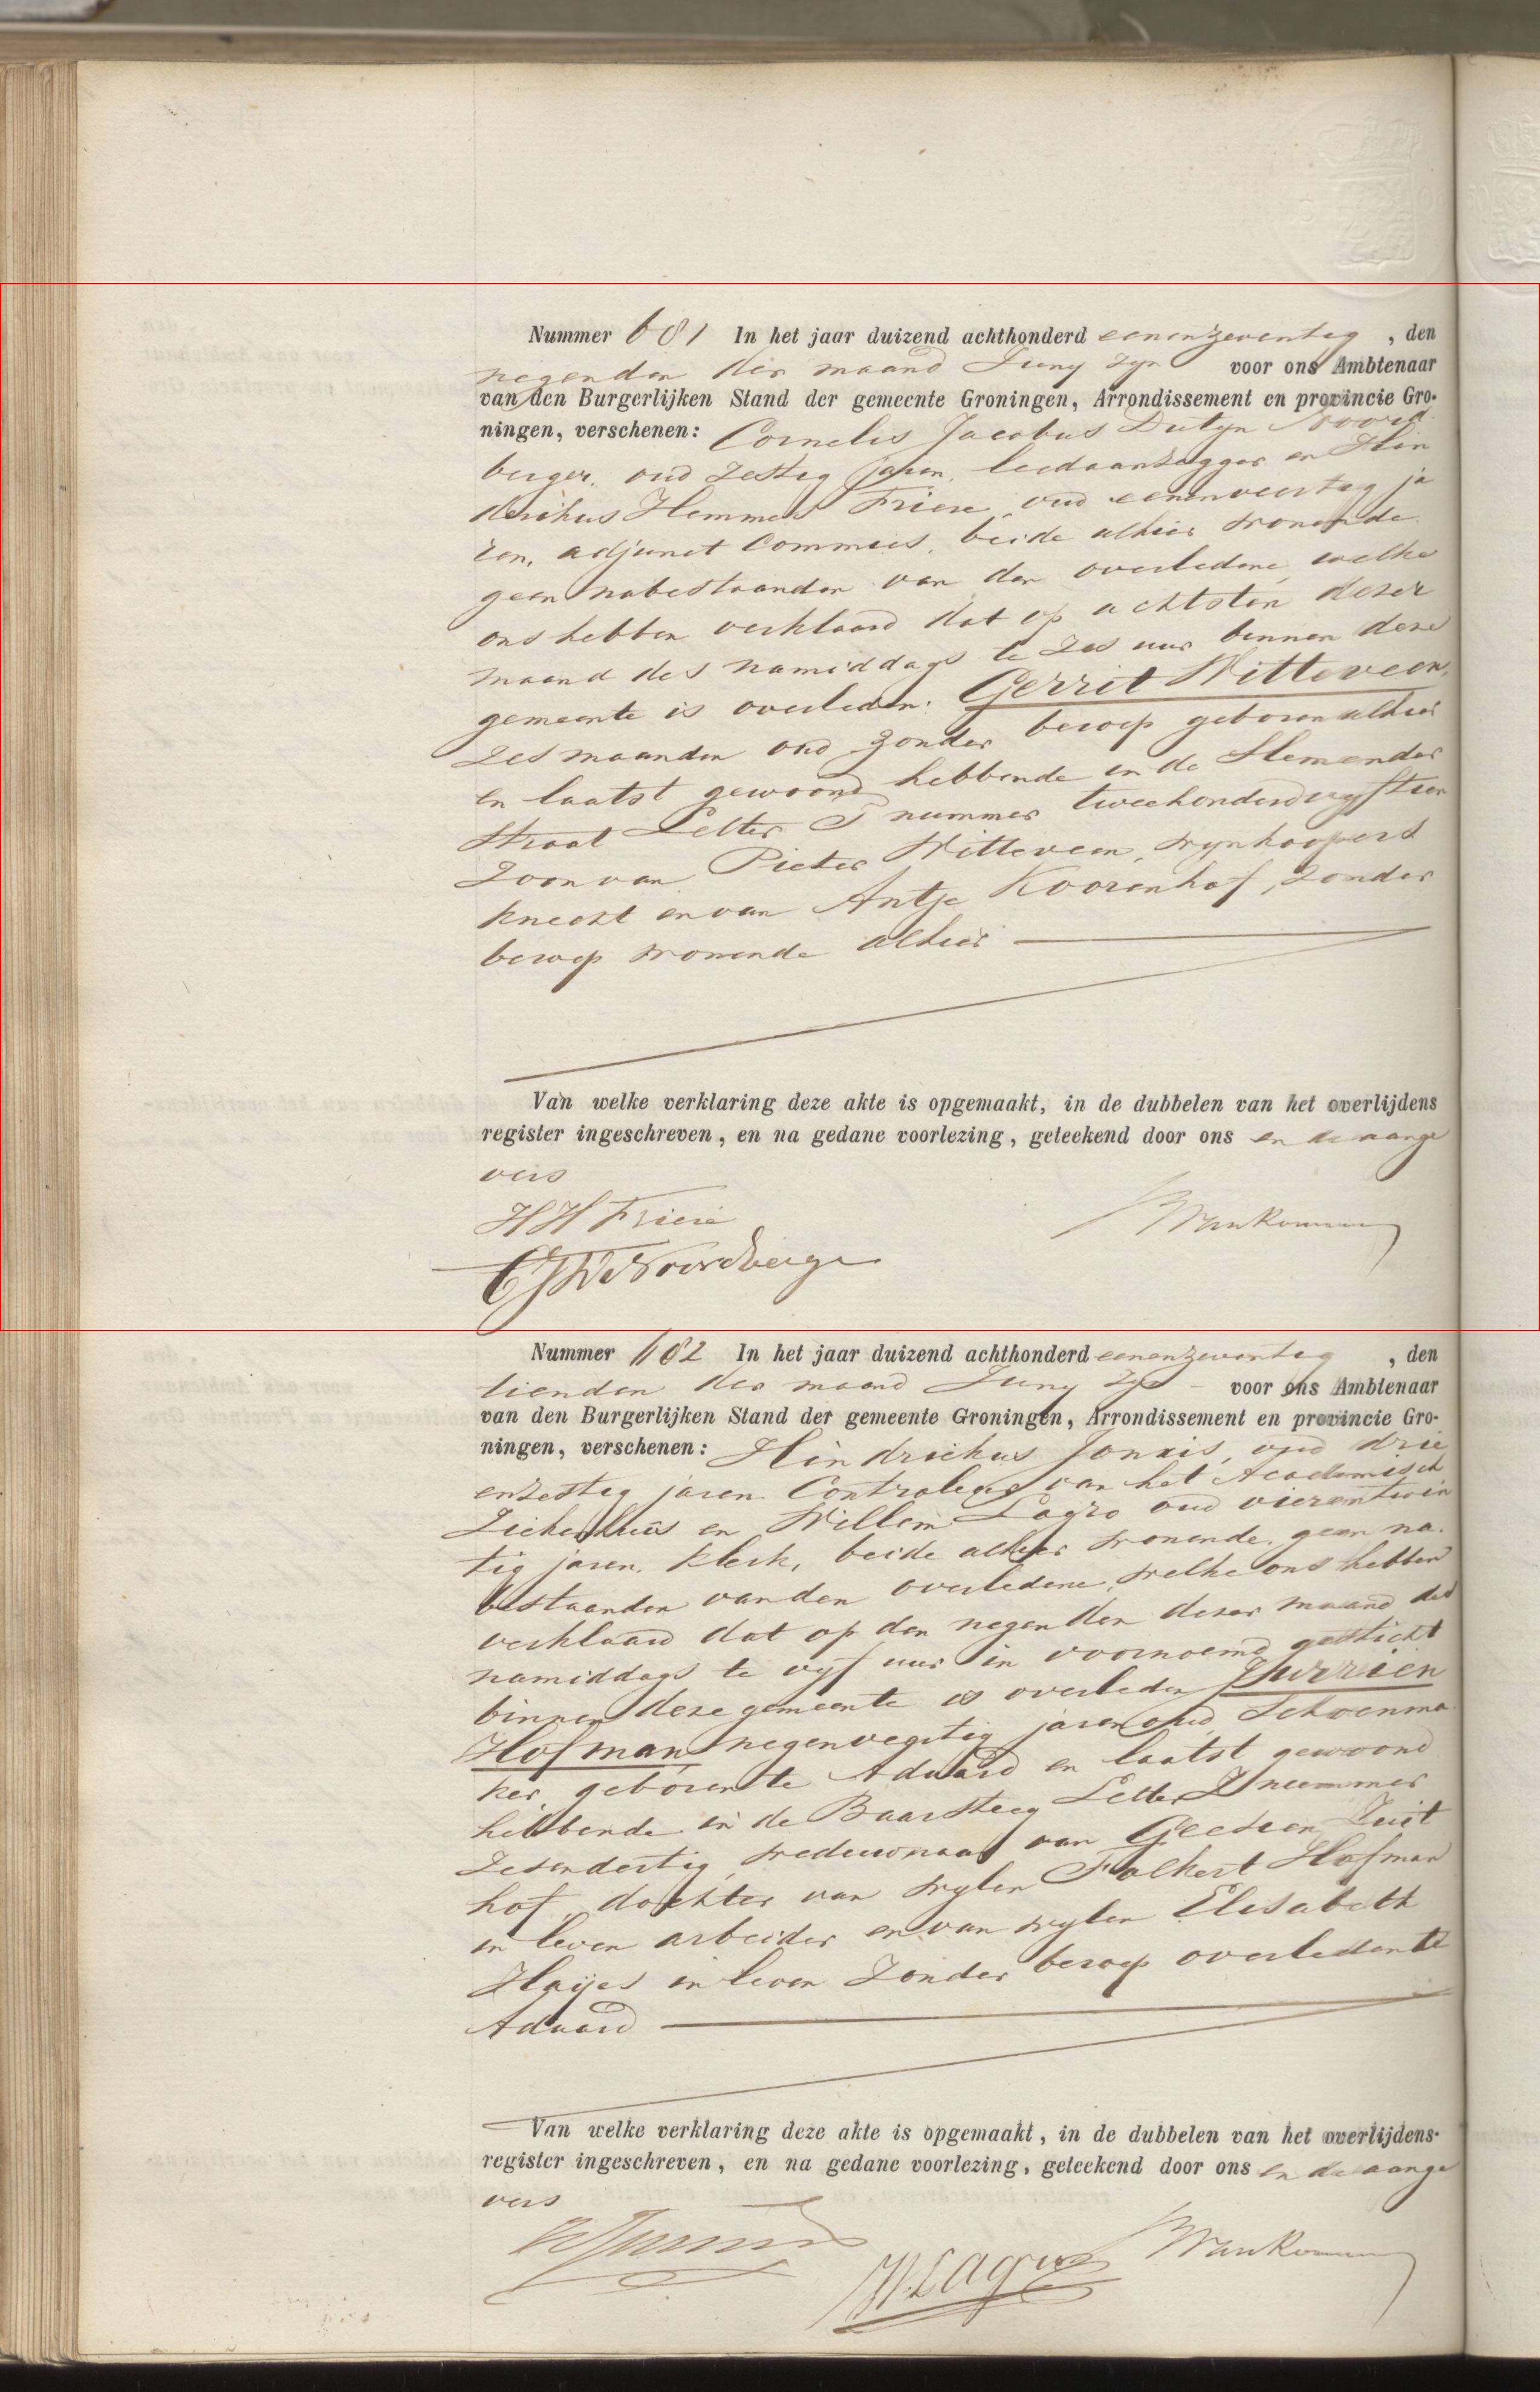 Nummer 681 In het jaar duizend achthonderd eenenzeventig, den
negenden der maand Juny zyn voor ons Ambtenaar
van den Burgerlijken Stand der gemeente Groningen, Arrondissement en provincie Gro-
ningen, verschenen: Cornelis Jacobus Noord
berger, oud zestig jaren, leedaanzegger en Hin
derikus Hemmes Friere, oud eenenveertig ja
ren, adjunct Commies, beide alhier wonende
geen nabestaanden van den overledene, welke
ons hebben verklaard dat op achtsten dezer
maand des namiddags te zes uur binnen deze
gemeente is overleden: Gerrit Witteveen,
zes maanden oud zonder beroep geboren alhier
en laatst gewoond hebbende in de
Straat Letter nummer
Zoon van Pieter Witteveen, wynkoopers
knecht en van Antje Koorenhof, zonder
beroep wonende alhier
Van welke verklaring deze akte is opgemaakt, in de dubbelen van het overlijdens
register ingeschreven, en na gedane voorlezing, geteekend door ons en de aange
vers
HH Friere
Noordberger
Nummer 682 In het jaar duizend achthonderd eenenzeventig, den
tienden der maand Juny zyn voor ons Ambtenaar
van den Burgerlijken Stand der gemeente Groningen, Arrondissement en provincie Gro-
ningen, verschenen: Hindrickus Jonxis, oud drie
enzestig jaren Controleur van het Academisch
Ziekenhuis en Willem Lagro oud vierentwin
tig jaren, klerk, beide alhier wonende, geen na-
bestaanden van den overledene, welke ons hebben
verklaard dat op den negenden dezer maand des
namiddags te vyf uur in voornoemd gesticht
binnen deze gemeente is overleden Jurrien
Hofman, negenveertig jaren oud, Schoenma
ker, geboren te Aduard en laatst gewoond
hebbende in de Baarsteeg Letter Z nummer
zesendertig, weduwnaar van Geessien Zuit
hof, dochter van wylen Folkert Hofman
in leven arbeider en van wylen Elisabeth
Hayes in leven zonder beroep overleden te
Aduard
Van welke verklaring deze akte is opgemaakt, in de dubbelen van het overlijdens-
register ingeschreven, en na gedane voorlezing, geteekend door ons en de aange
vers
W. Lagro